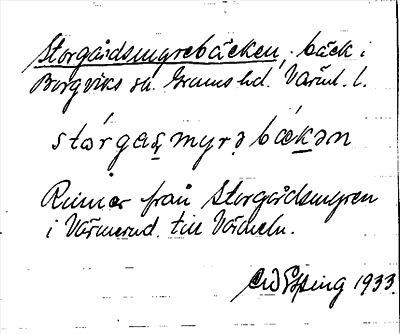 Storgårdsmyrebäcken, bäck i
Borgviks sn. Grums hd. Värml. l.
stórgaʂmyrəbækən
Rinner från Storgårdsmyren
i Värmerud. till Värmeln.
1933.